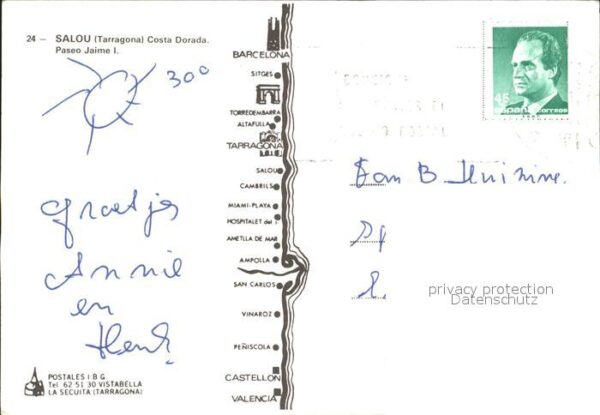 24 — SALOU (Tarragona) Costa Dorada.
Paseo Jaime I.
30°
Groetjes
Annie
en
Henk
POSTALES I.B.G.
Tel 62 51 30 VISTABELLA
LA SECUITA (TARRAGONA)
BARCELONA
SITGES
TORREDEMBARRA
ALTAFULLA
TARRAGONA
SALOU
CAMBRILS
MIAMI-PLAYA
HOSPITALET del I
AMETLLA DE MAR
AMPOLLA
SAN CARLOS
VINAROZ
PEÑISCOLA
CASTELLON
VALENCIA
45
españa correos
Fam B
privacy protection
Datenschutz